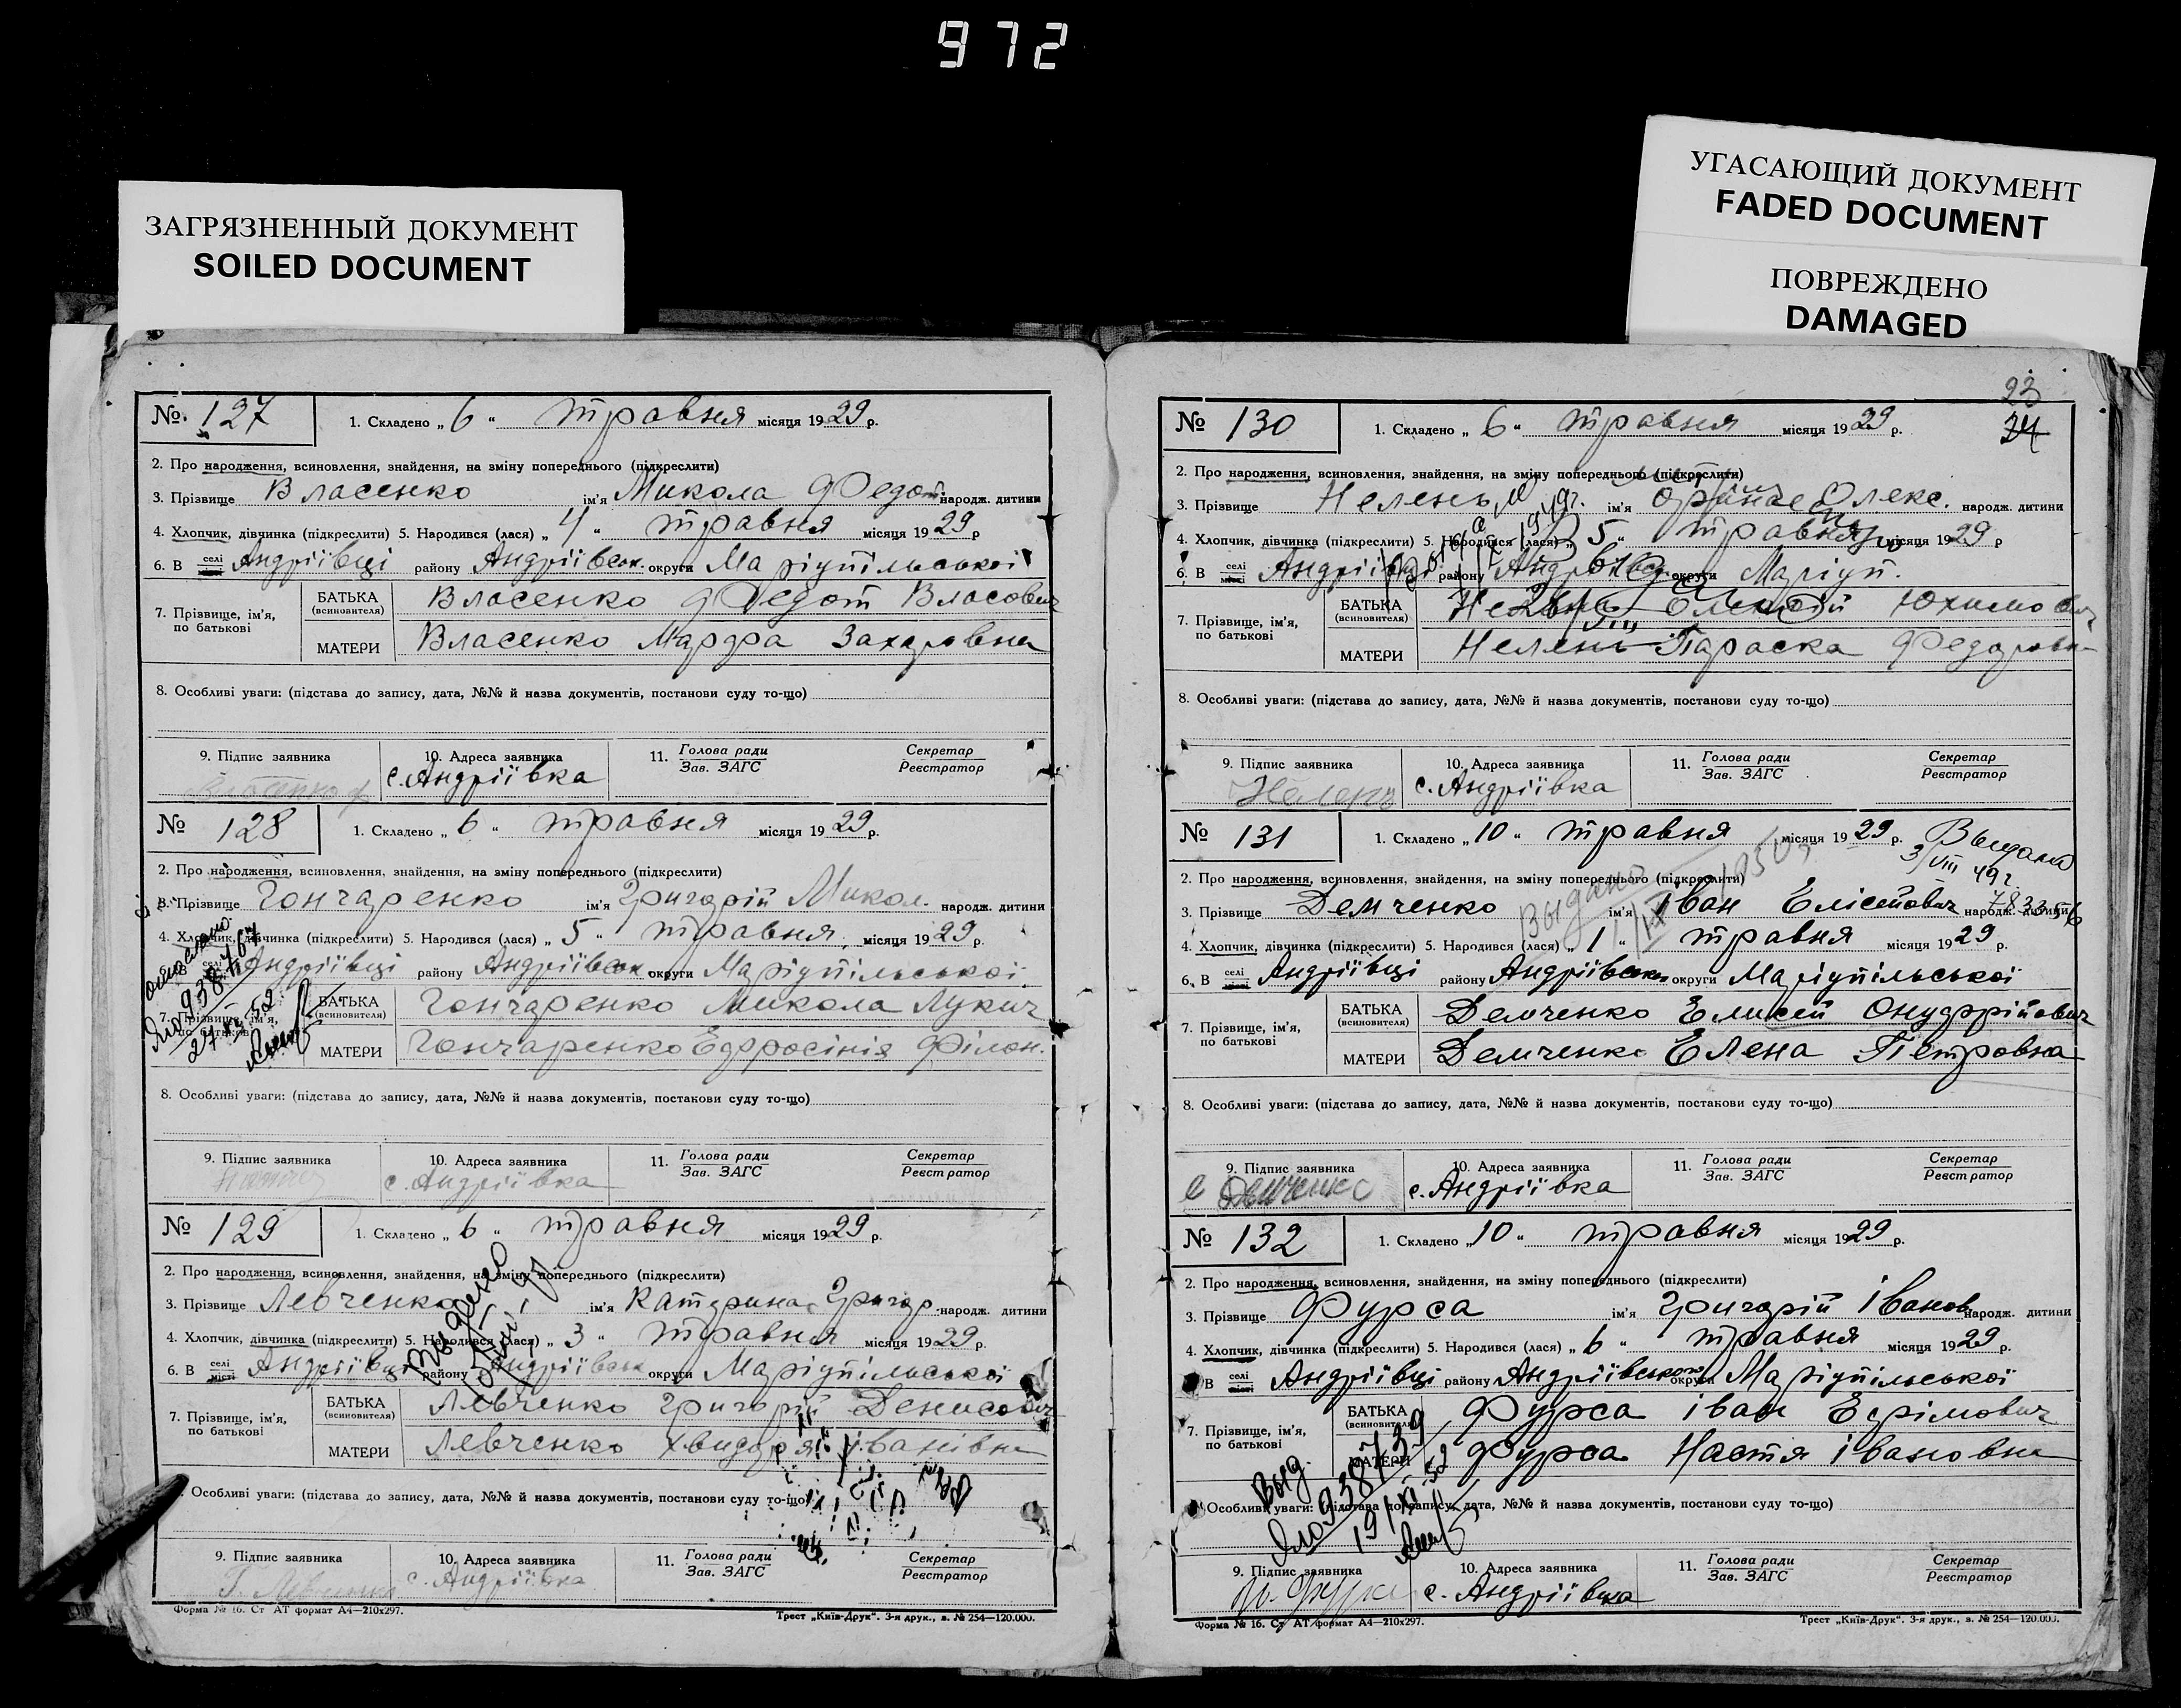 972
ЗАГРЯЗНЕННЫЙ ДОКУМЕНТ
SOILED DOCUMENT
УГАСАЮЩИЙ ДОКУМЕНТ
FADED DOCUMENT
ПОВРЕЖДЕНО
DAMAGED
№ 127 1. Складено „ 6 “ травня місяця 1929 р.
2. Про народження, всиновлення, знайдення, на зміну попереднього (підкреслити)
3. Прізвище Власенко ім'я Микола Федот. народж. дитини
4. Хлопчик, дівчинка (підкреслити) 5. Народився (лася) „ 4 “ травня місяця 1929 р
6. В селі місті Андріївці району Андріївськ. округи Маріупільської
7. Прізвище, ім'я, по батькові БАТЬКА (всиновителя) Власенко Федот Власович
МАТЕРИ Власенко Марфа Захаровна
8. Особливі уваги: (підстава до запису, дата, №№ й назва документів, постанови суду то-що)
9. Підпис заявника 10. Адреса заявника 11. Голова ради Зав. ЗАГС Секретар Реєстратор
с. Андріївка
№ 128 1. Складено „ 6 “ травня місяця 1929 р.
2. Про народження, всиновлення, знайдення, на зміну попереднього (підкреслити)
3. Прізвище Гончаренко ім'я Григорій Микол. народж. дитини
4. Хлопчик, дівчинка (підкреслити) 5. Народився (лася) „ 5 “ травня місяця 1929 р.
6. В селі Андріївці району Андріївськ округи Маріупільської
7. Прізвище, ім'я, по батькові БАТЬКА (всиновителя) Гончаренко Микола Лукич
МАТЕРИ Гончаренко Ефросінія Філон.
8. Особливі уваги: (підстава до запису, дата, №№ й назва документів, постанови суду то-що)
9. Підпис заявника 10. Адреса заявника 11. Голова ради Зав. ЗАГС Секретар Реєстратор
с. Андріївка
№ 129 1. Складено „ 6 “ травня місяця 1929 р.
2. Про народження, всиновлення, знайдення, на зміну попереднього (підкреслити)
3. Прізвище Левченко ім'я Катерина Григор. народж. дитини
4. Хлопчик, дівчинка (підкреслити) 5. Народився (лася) „ 3 “ травня місяця 1929 р.
6. В селі місті Андріївці району Андріївськ округи Маріупільської
7. Прізвище, ім'я, по батькові БАТЬКА (всиновителя) Левченко Григорій Денисович
МАТЕРИ Левченко Хвидора Іванівна
Особливі уваги: (підстава до запису, дата, №№ й назва документів, постанови суду то-що)
9. Підпис заявника 10. Адреса заявника 11. Голова ради Зав. ЗАГС Секретар Реєстратор
с. Андріївка
Форма № 16. Ст АТ формат А4—210х297. Трест „Київ-Друк“. 3-я друк., з. № 254—120.000.
23
34
№ 130 1. Складено „ 6 “ травня місяця 1929 р.
2. Про народження, всиновлення, знайдення, на зміну попереднього (підкреслити)
3. Прізвище Нелень ім'я Олекс. народж. дитини
4. Хлопчик, дівчинка (підкреслити) 5. Народився (лася) „ 5 “ травня місяця 1929 р
6. В селі місті Андріївці району округи Маріуп.
7. Прізвище, ім'я, по батькові БАТЬКА (всиновителя) Нелень Олексій Юхимович
МАТЕРИ Нелень Параска Федоровна
8. Особливі уваги: (підстава до запису, дата, №№ й назва документів, постанови суду то-що)
9. Підпис заявника 10. Адреса заявника 11. Голова ради Зав. ЗАГС Секретар Реєстратор
Нелень с. Андріївка
№ 131 1. Складено „ 10 “ травня місяця 1929 р. Выдано
3/VIII 49 г.
2. Про народження, всиновлення, знайдення, на зміну попереднього (підкреслити)
3. Прізвище Демченко ім'я Іван Елісейович народж. дитини
Выдано 1/IX 1950 г.
4. Хлопчик, дівчинка (підкреслити) 5. Народився (лася) „ 1 “ травня місяця 1929 р.
6. В селі місті Андріївці району Андріївськ. округи Маріупільської
7. Прізвище, ім'я, по батькові БАТЬКА (всиновителя) Демченко Елисей Онуфрійович
МАТЕРИ Демченко Елена Петровна
8. Особливі уваги: (підстава до запису, дата, №№ й назва документів, постанови суду то-що)
9. Підпис заявника 10. Адреса заявника 11. Голова ради Зав. ЗАГС Секретар Реєстратор
Е Демченко с. Андріївка
№ 132 1. Складено „ 10 “ травня місяця 1929 р.
2. Про народження, всиновлення, знайдення, на зміну попереднього (підкреслити)
3. Прізвище Фурса ім'я Григорій Іванов. народж. дитини
4. Хлопчик, дівчинка (підкреслити) 5. Народився (лася) „ 6 “ травня місяця 1929 р.
В селі місті Андріївці району Андріївського округи Маріупільської
7. Прізвище, ім'я, по батькові БАТЬКА (всиновителя) Фурса Іван Ефімович
МАТЕРИ Фурса Настя Івановна
Выд.
938739
19/XI 52
Особливі уваги: (підстава до запису, дата, №№ й назва документів, постанови суду то-що)
9. Підпис заявника 10. Адреса заявника 11. Голова ради Зав. ЗАГС Секретар Реєстратор
с. Андріївка
Форма № 16. Ст АТ формат А4—210х297. Трест „Київ-Друк“. 3-я друк., з. № 254—120.000.